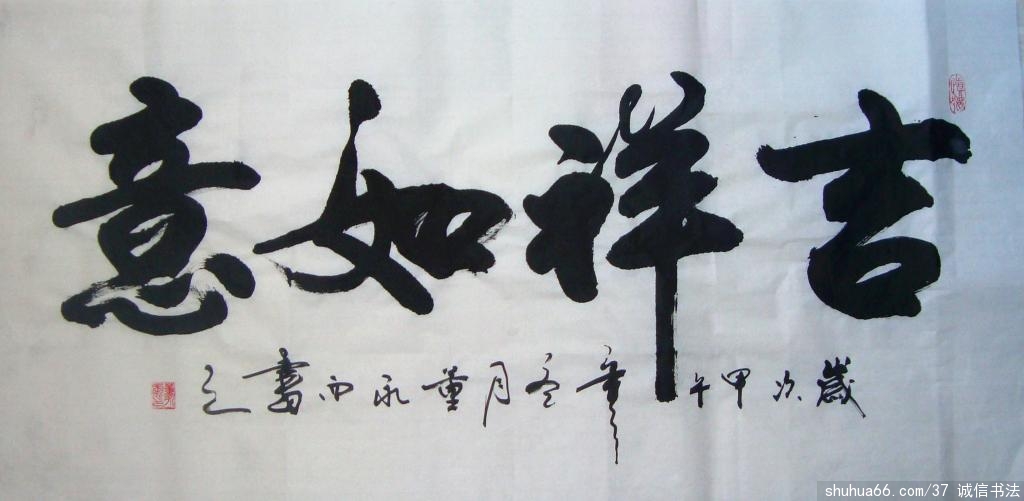 吉祥如意
歲次甲午年冬月董永西書之
shuhua66.com/37 诚信书法